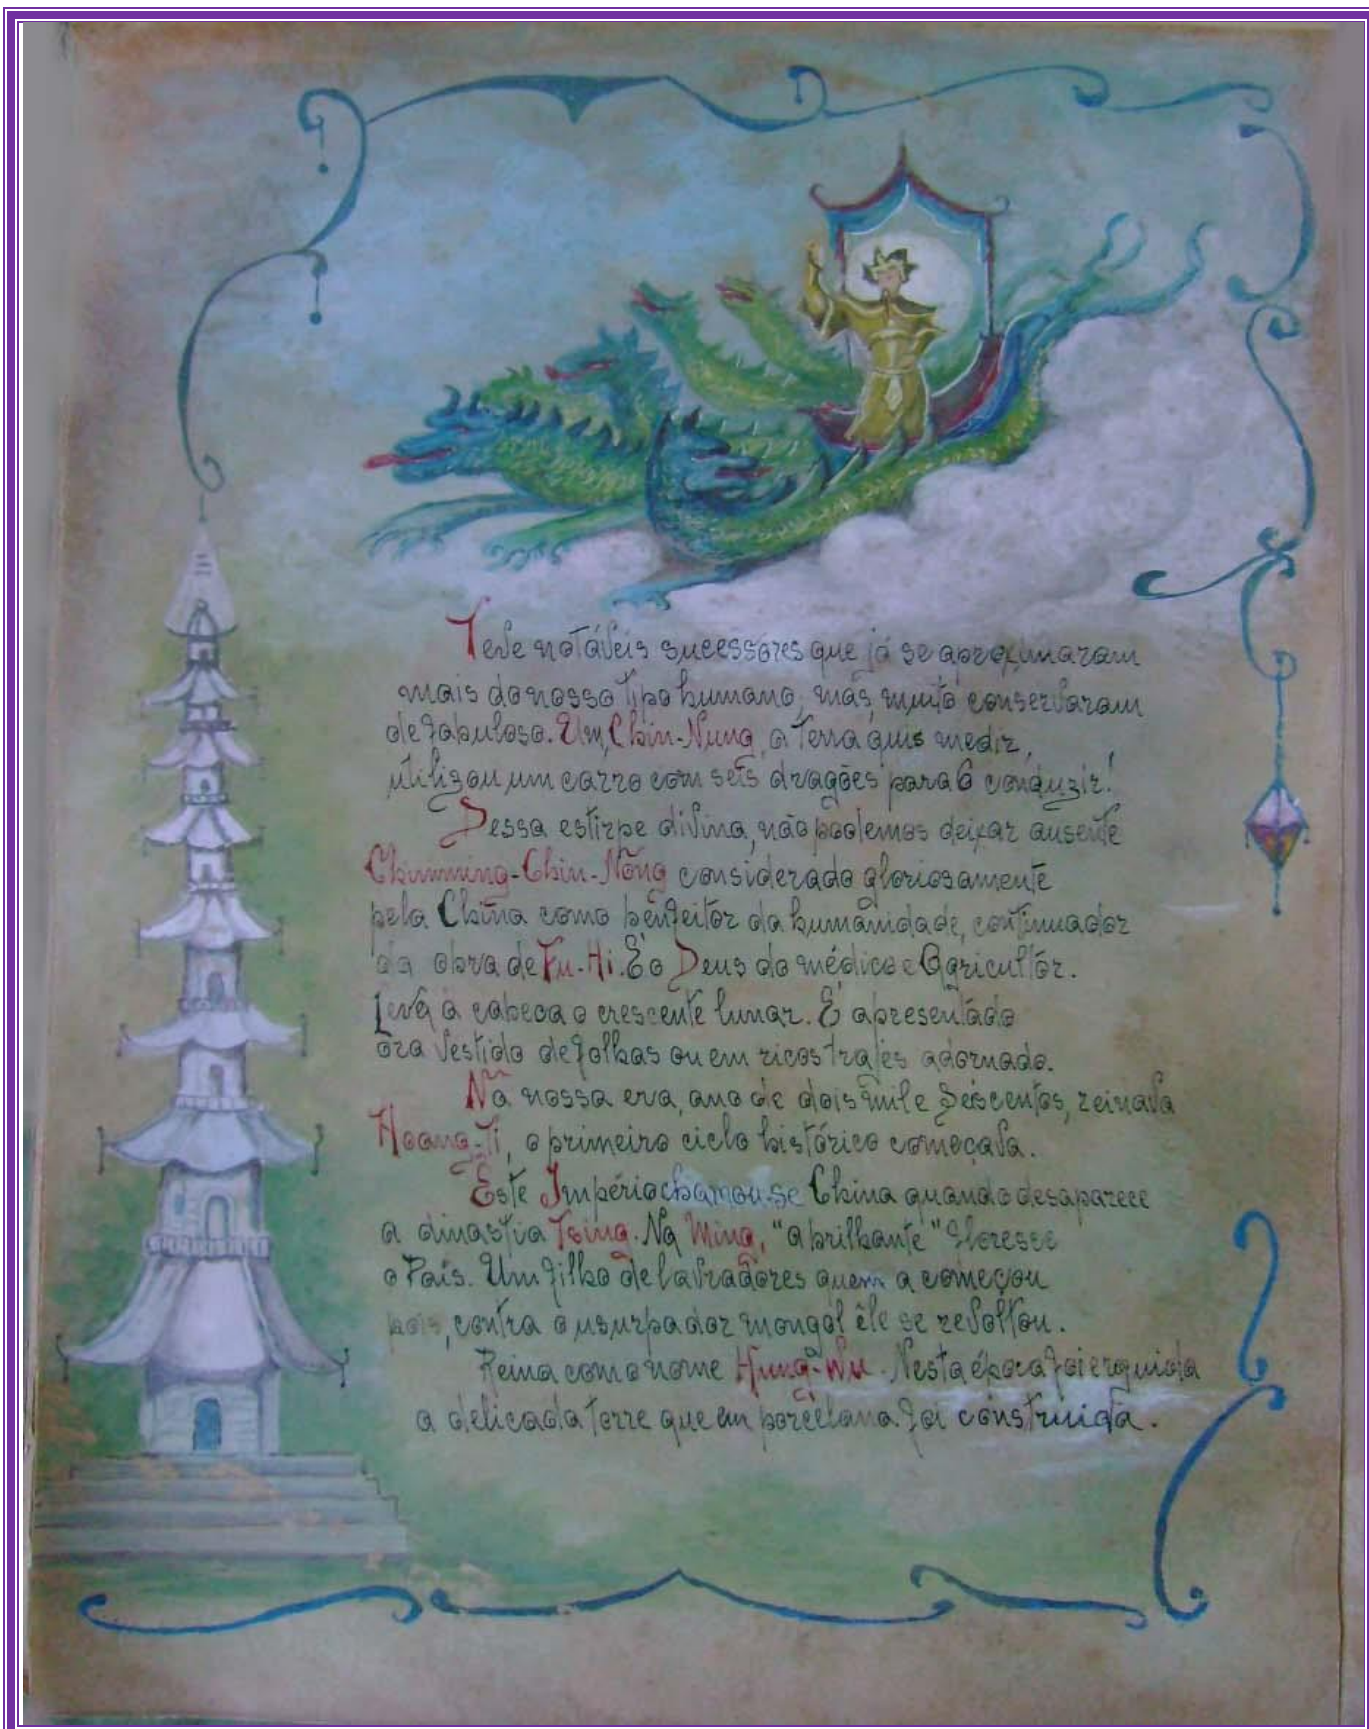 Teve notáveis sucessores que já se aproximaram
mais do nosso tipo humano, mas, muito conservaram
de fabuloso. Um, Chin-Nung, a Terra quis medir,
utilizou um carro com seis dragões para o conduzir!
Dessa estirpe divina, não podemos deixar ausente
Chinming-Chin-Nong considerado gloriosamente
pela China como benfeitor da humanidade, continuador
da obra de Fu-Hi. É o Deus do médico e Agricultor.
Leva à cabeça o crescente lunar. É apresentado
ora vestido de folhas ou em ricos trajes adornado.
Na nossa era, ano de dois mil e seiscentos, reinava
Hoang-Ti, o primeiro ciclo histórico começava.
Este Império chamou-se China quando desaparece
a dinastia Tsing. Na Ming, "a brilhante" floresce
o País. Um filho de lavradores quem a começou
pois, contra o usurpador mongol êle se revoltou.
Reina com o nome Hung-Wu. Nesta época foi erguida
a delicada torre que em porcelana foi construida.